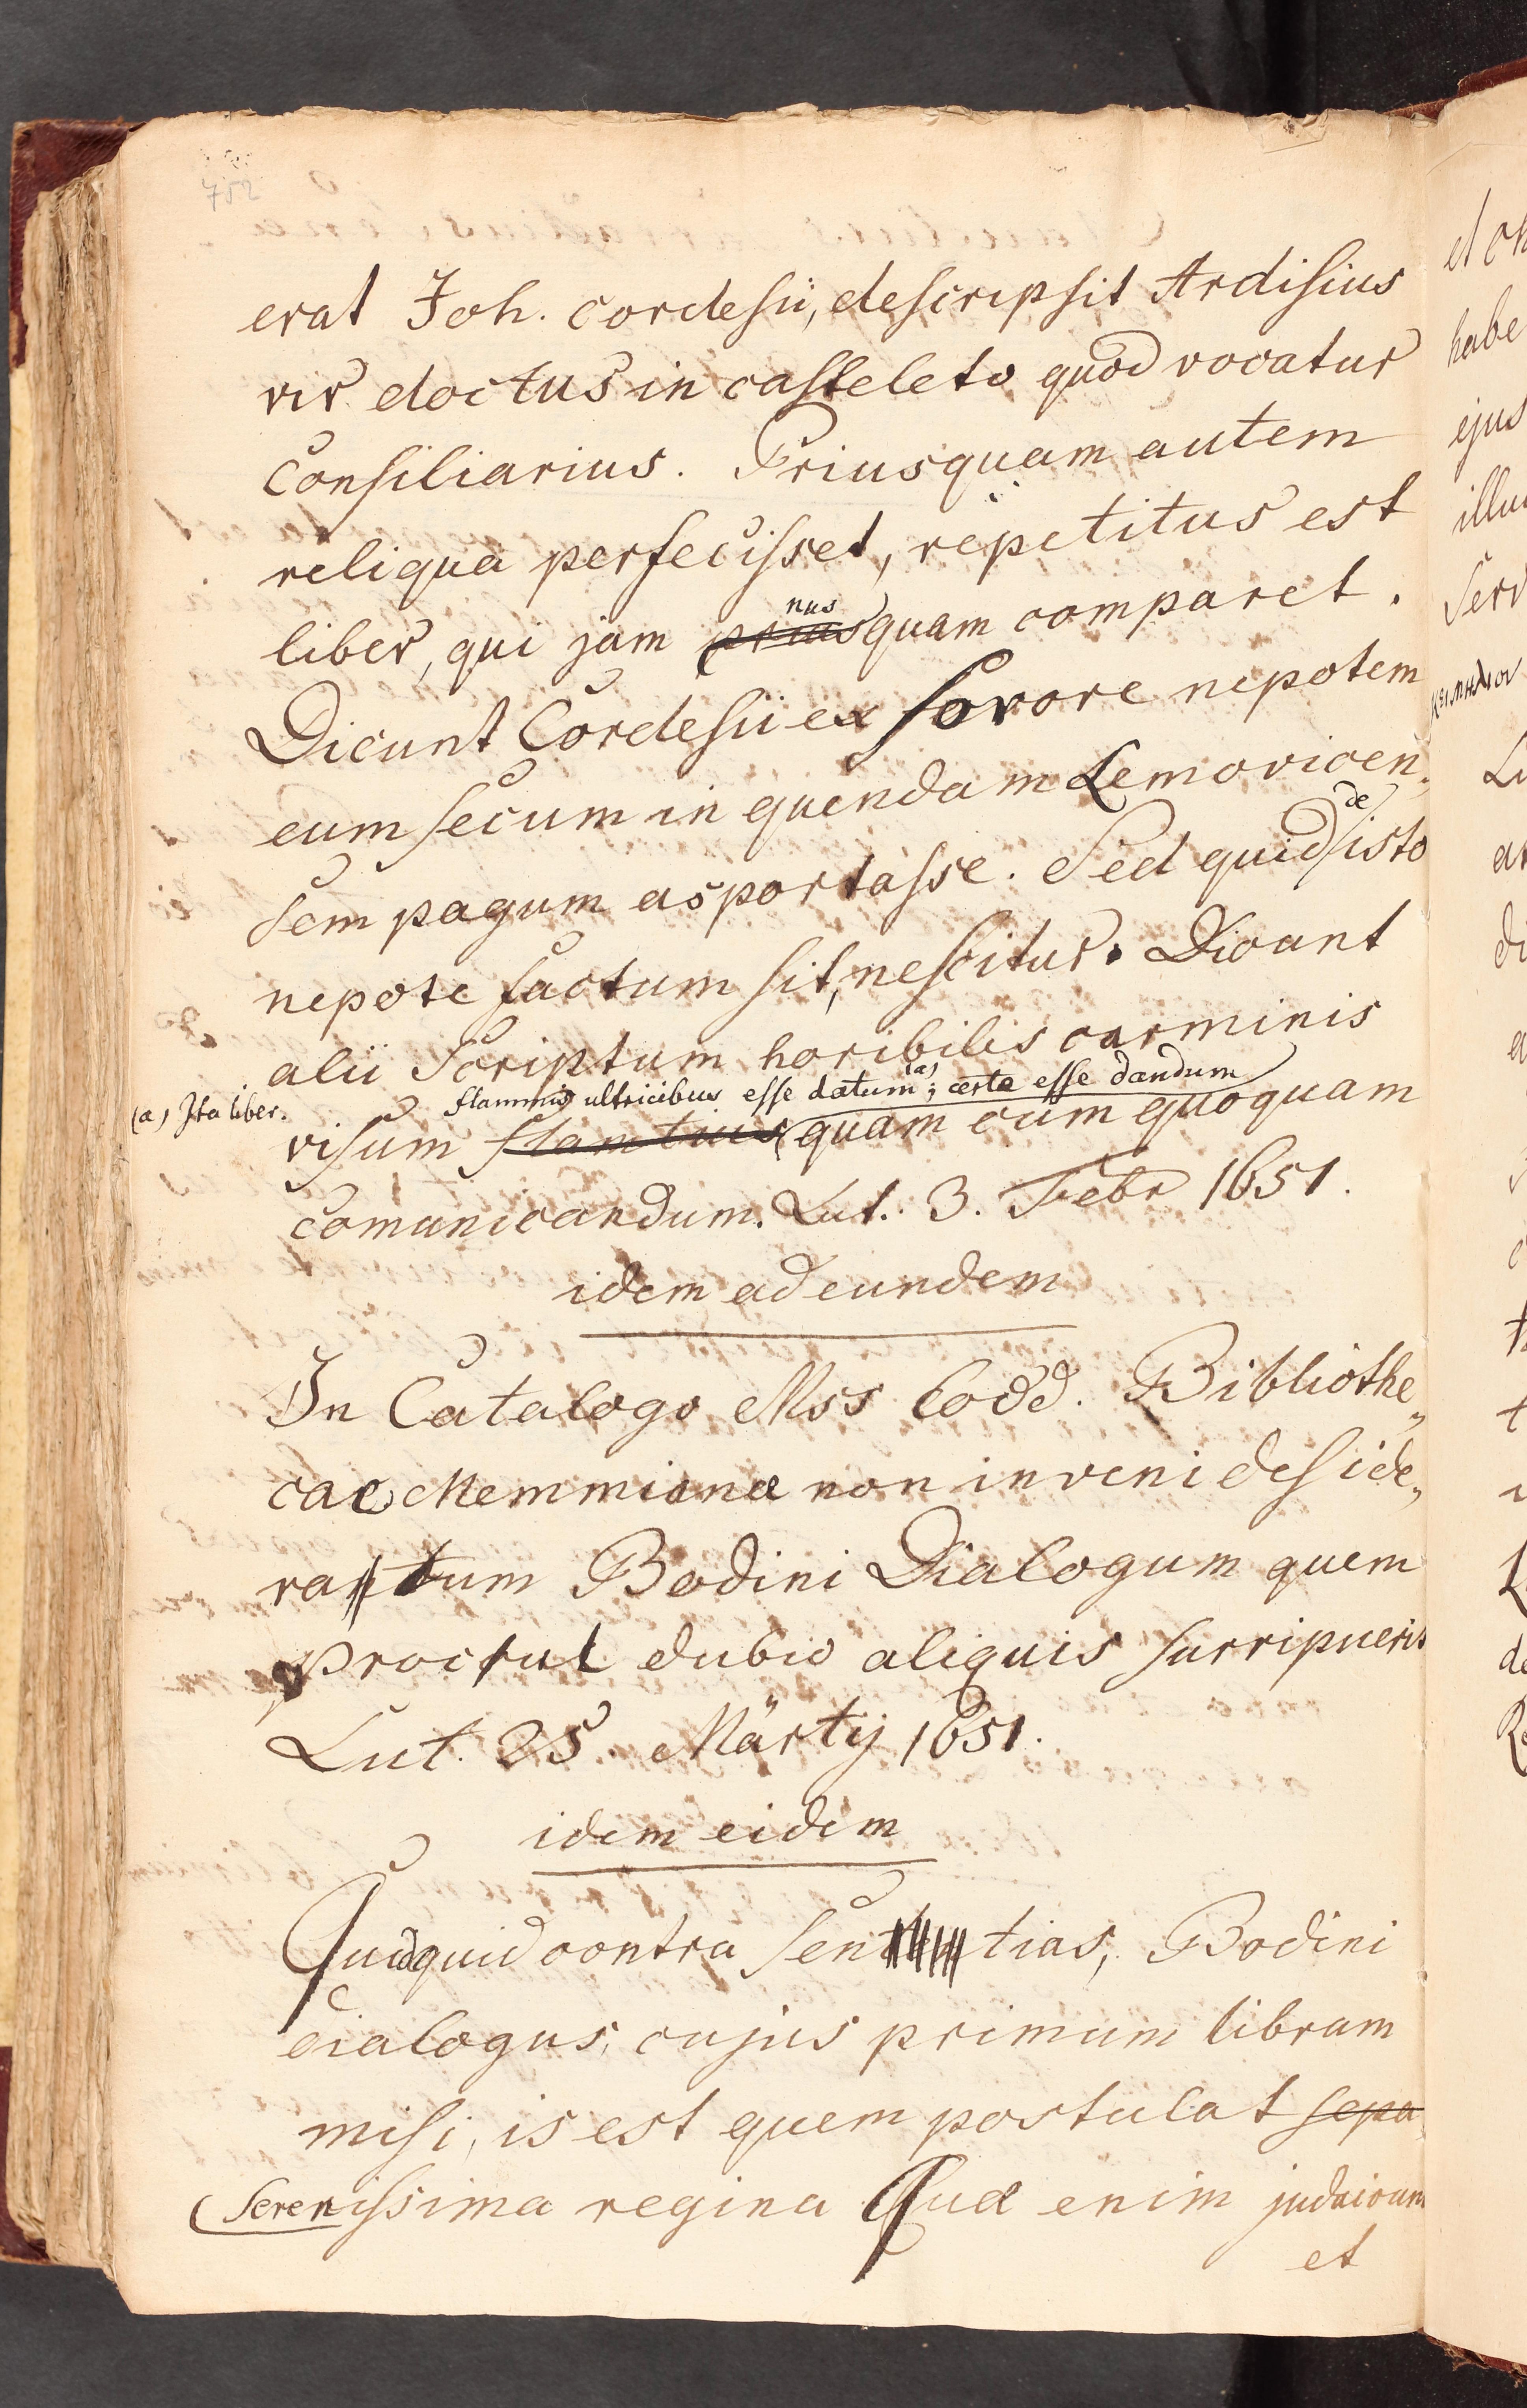 752
erat Joh. Cordesii, descripsit Ardisius
vir doctus in casteleto quod vocatur
Consiliarius. Priusquam autem
reliqua perfecisset, repetitus est
liber, qui jam priusquam comparet.
nus
Dicunt Cordesii ex sorore nepotem
eum secum in quendam Lemovicen„
sem pagum asportasse. Sed quid de isto
nepote factum sit, nescitur. Dicant
alii Scriptum horibilis carminis
flammis ultricibus esse datum (a); certe esse dandum
(a) Ita liber.
visum quam cum quoquam
comunicandum. Lut. 3. Febr 1651.
idem ad eundem
In Catalogo Mss Codd. Bibliothe„
cae Memmianae non inveni deside„
ratum Bodini Dialogum quem
procul dubio aliquis surripuerit
Lut. 25. Martij 1651.
idem eidem
Quidquid contra sentias, Bodini
dialogus, cujus primum librum
misi, is est quem postulat sepa
Serenissima regina Quae enim judaicum
et